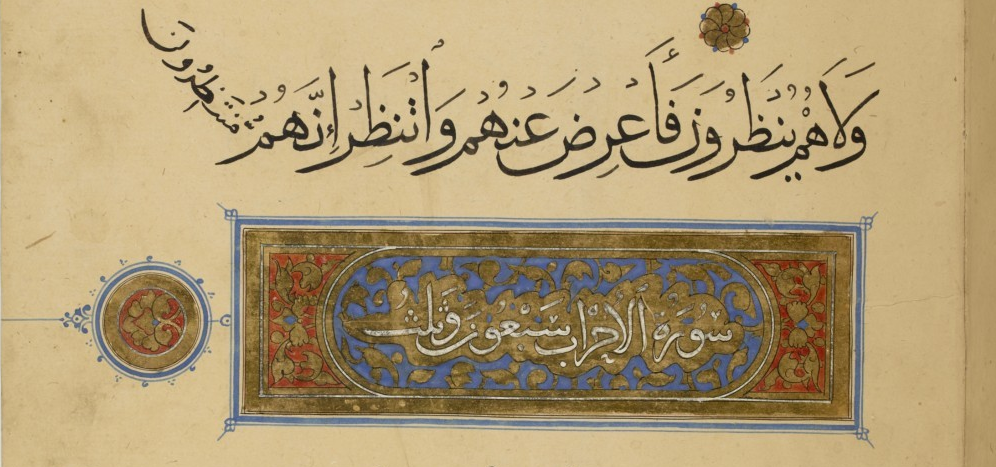 وَلَا هُمْ يُنظَرُونَ فَأَعْرِضْ عَنْهُمْ وَانتَظِرْ إِنَّهُم مُّنتَظِرُونَ
سورة الاحزاب سبعون وثلث